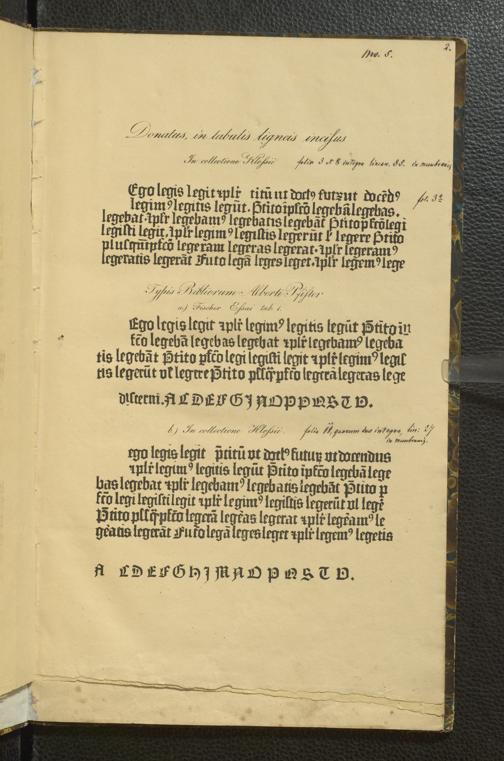 2.
No. 5.
Donatus, in tabulis ligneis incisus
In collectione Klossii folia 3 et 8 integra linear. 33. in membranis
Ego legis legit ⁊plr̄ titū ut doct⁹ futur ut docēd⁹ fol. 3ª
legim⁹ legitis legūt. P̄tito īpfc̄o legebā legebas.
legebat. ⁊plr̄ legebam⁹ legebatis legebāt P̄tito pfc̄o legi
legisti legit. ⁊plr̄ legim⁹ legistis legerūt ł legere P̄tito
plusquāpfc̄o legeram legeras legerat. ⁊plr̄ legeram⁹
legeratis legerāt Futo legā leges leget. ⁊plr̄ legem⁹ lege
Typis Bibliorum Alberti Pfister
a) Fischer Essai tab. 1.
Ego legis legit ⁊plr̄ legim⁹ legitis legūt P̄tito in
fc̄o legebā legebas legebat ⁊plr̄ legebam⁹ legeba
tis legebāt P̄tito pfc̄o legi legisti legit ⁊plr̄ legim⁹ legis
tis legerūt vl̄ legere P̄tito plsq̄pfc̄o legerā legeras lege
discerni. A C D E F G I N O P P Q S T V.
b) In collectione Klossii folia 11, quorum duo integra, lin: 27 in membranis.
ego legis legit p̄titū vt doct⁹ futur vt docendus
⁊plr̄ legim⁹ legitis legūt P̄tito īpfc̄o legebā lege
bas legebat ⁊plr̄ legebam⁹ legebatis legebāt P̄tito p
fc̄o legi legisti legit ⁊plr̄ legim⁹ legistis legerūt vl̄ legē
P̄tito plsq̄pfc̄o legerā legēas legerat ⁊plr̄ legēam⁹ le
gēatis legerāt Futo legā leges leget ⁊plr̄ legem⁹ legetis
A C D E F G H J M N O P Q S T V.